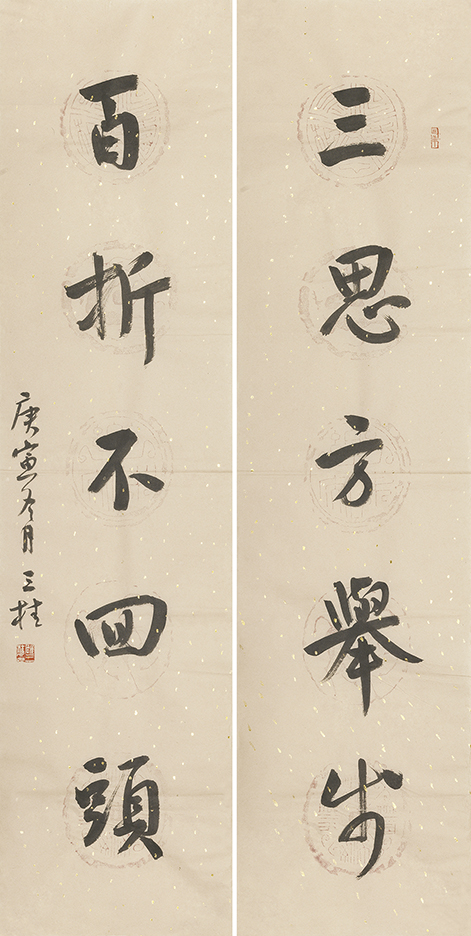 三思方舉步
百折不回頭
庚寅冬月 三桂